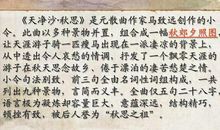 《天净沙·秋思》是元散曲作家马致远创作的小
令。此曲以多种景物并置，组合成一幅秋郊夕照图，
让天涯游子骑一匹瘦马出现在一派凄凉的背景上，
从中透出令人哀愁的情调，抒发了一个飘零天涯的
游子在秋天思念故乡、倦于漂泊的凄苦愁楚之情。
小令句法别致，前三句全由名词性词组构成，一共
列出九种景物，言简而义丰。全曲仅五句二十八字，
语言极为凝炼却容量巨大，意蕴深远，结构精巧，
顿挫有致，被后人誉为“秋思之祖”。